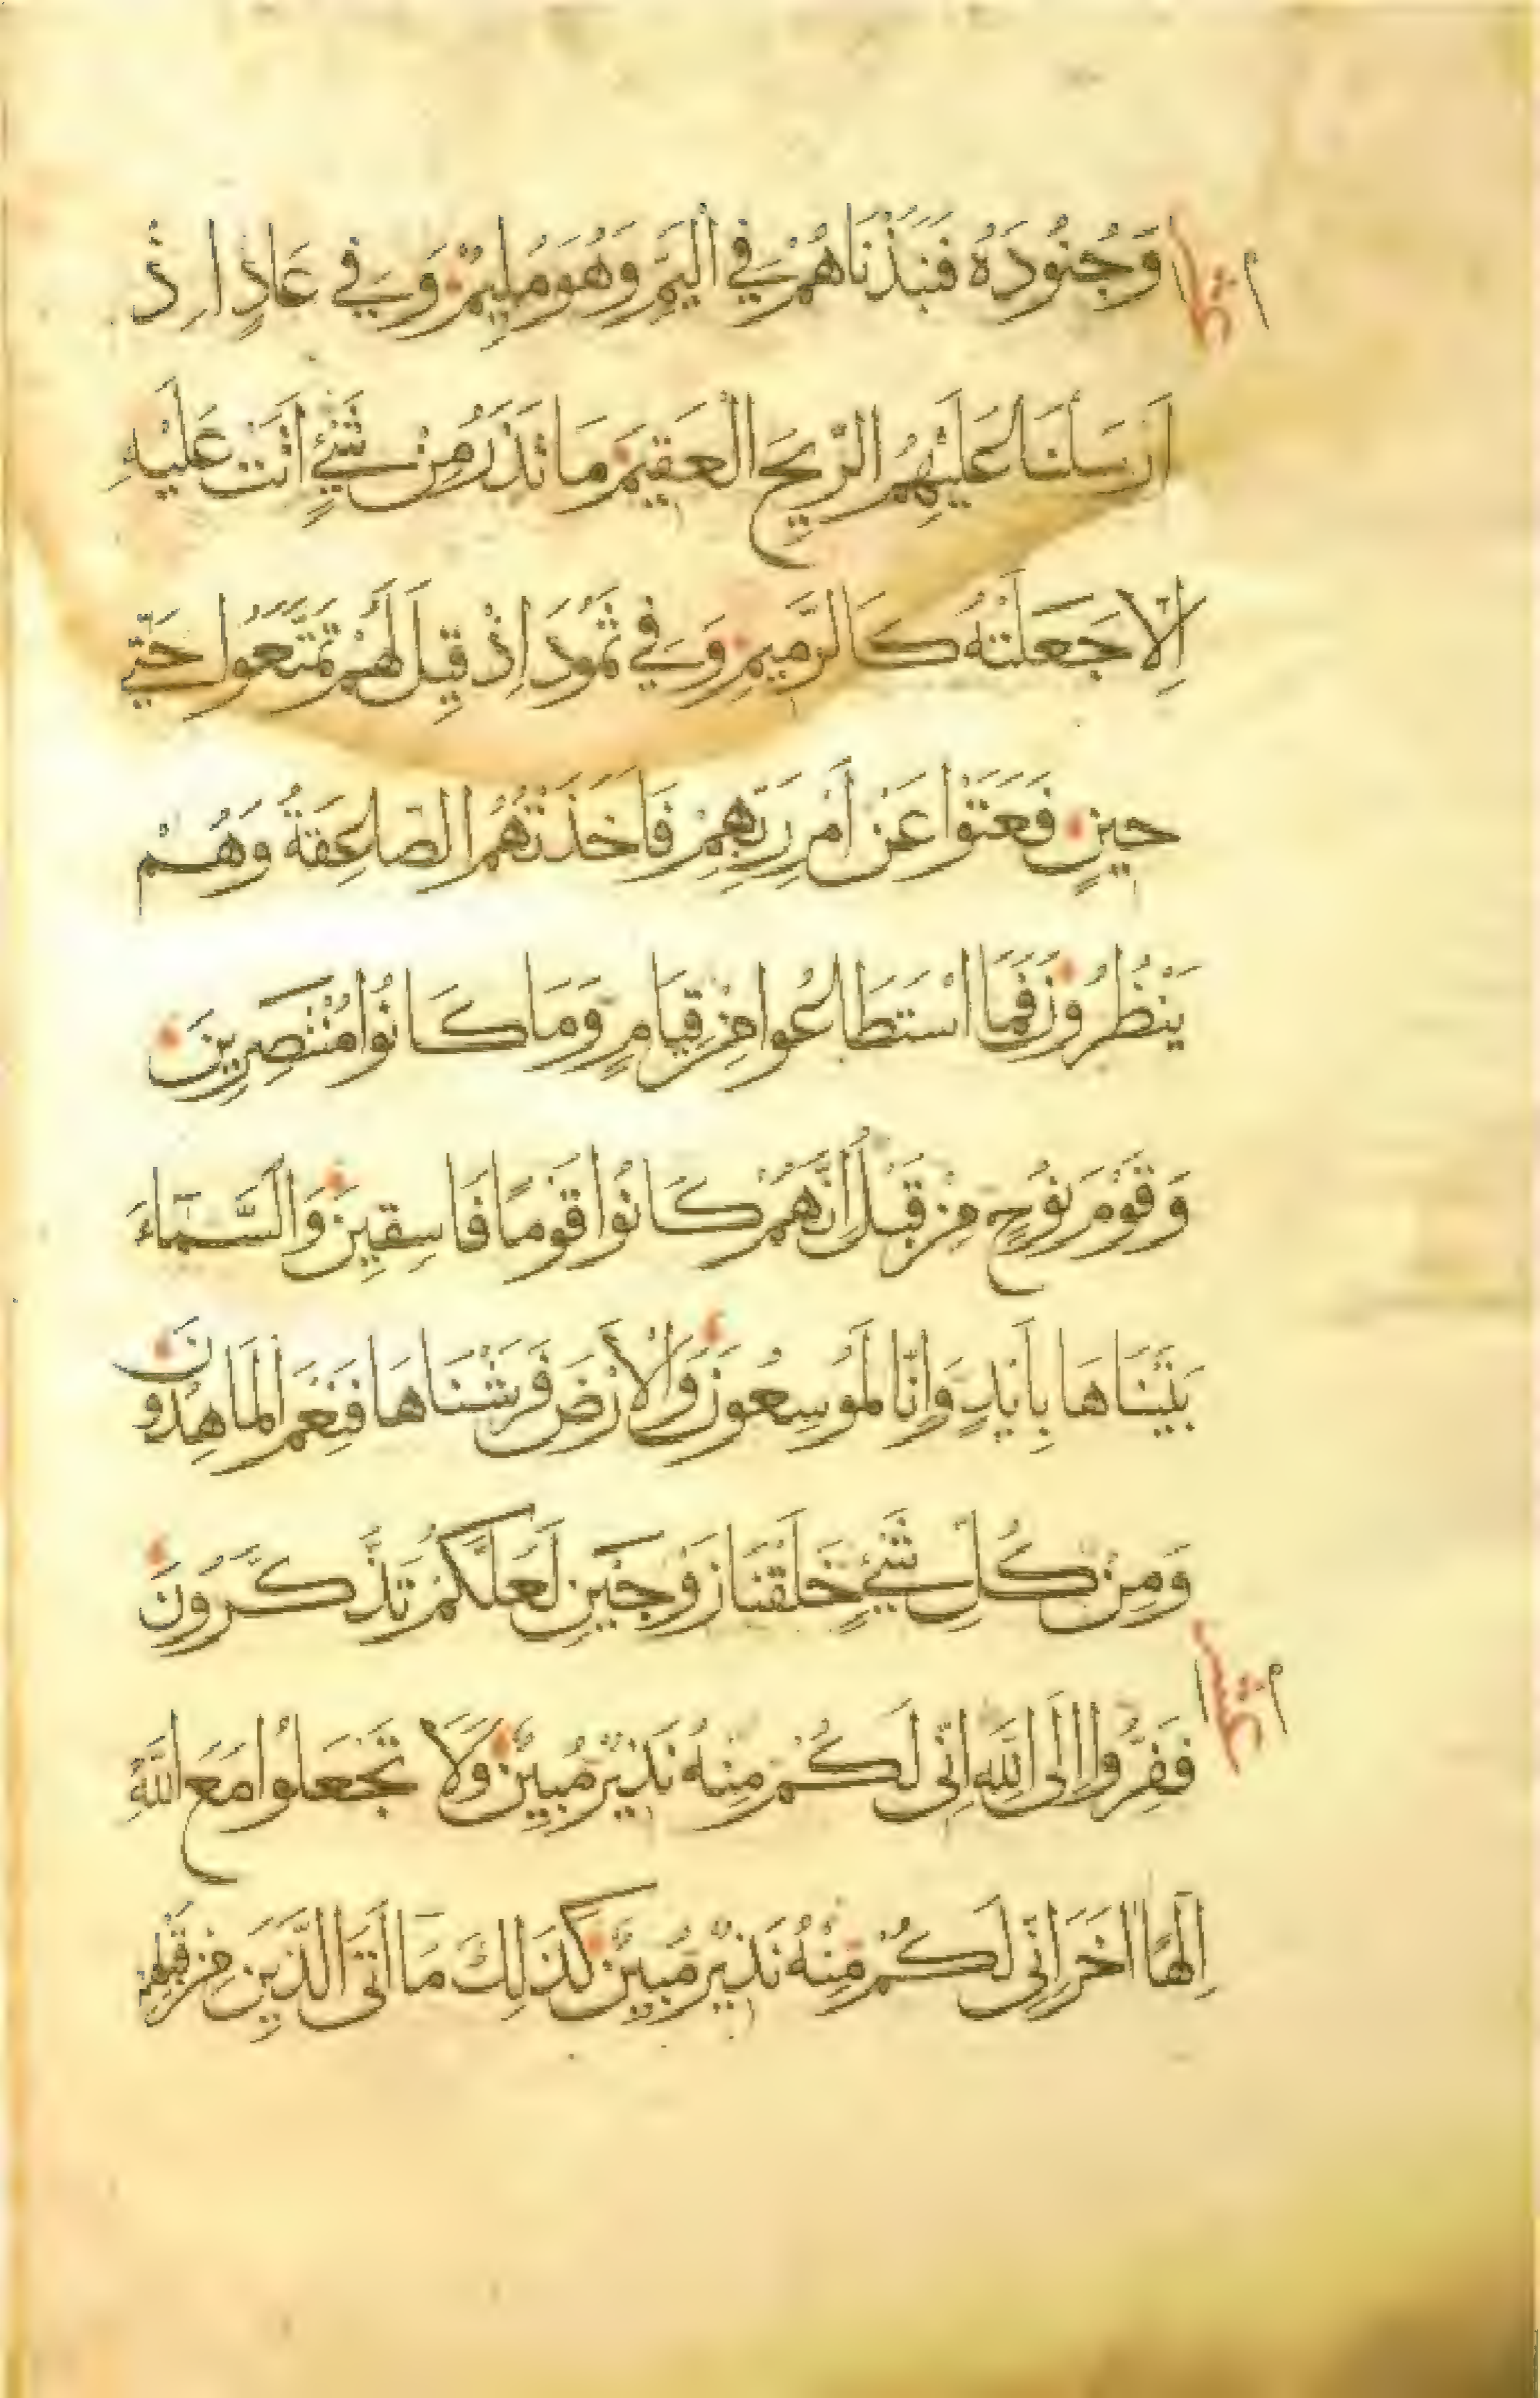 وَجُنُودَهُ فَنَبَذْنَاهُمْ فِي الْيَمِّ وَهُوَ مُلِيمٌ وَفِي عَادٍ اِذْ
اَرْسَلْنَا عَلَيْهِمُ الرِّيحَ الْعَقِيمَ مَا تَذَرُ مِنْ شَيْءٍ اَتَتْ عَلَيْهِ
اِلَّا جَعَلَتْهُ كَالرَّمِيمِ وَفِي ثَمُودَ اِذْ قِيلَ لَهُمْ تَمَتَّعُوا حَتَّى
حِينٍ فَعَتَوْا عَنْ اَمْرِ رَبِّهِمْ فَاَخَذَتْهُمُ الصَّاعِقَةُ وَهُمْ
يَنْظُرُونَ فَمَا اسْتَطَاعُوا مِنْ قِيَامٍ وَمَا كَانُوا مُنْتَصِرِينَ
وَقَوْمَ نُوحٍ مِنْ قَبْلُ اِنَّهُمْ كَانُوا قَوْمًا فَاسِقِينَ وَالسَّمَاءَ
بَنَيْنَاهَا بِاَيْدٍ وَاِنَّا لَمُوسِعُونَ وَالْاَرْضَ فَرَشْنَاهَا فَنِعْمَ الْمَاهِدُونَ
وَمِنْ كُلِّ شَيْءٍ خَلَقْنَا زَوْجَيْنِ لَعَلَّكُمْ تَذَّكَّرُونَ
فَفِرُّوا اِلَى اللّٰهِ اِنِّي لَكُمْ مِنْهُ نَذِيرٌ مُبِينٌ وَلَا تَجْعَلُوا مَعَ اللّٰهِ
اِلٰهًا اٰخَرَ اِنِّي لَكُمْ مِنْهُ نَذِيرٌ مُبِينٌ كَذٰلِكَ مَا اَتَى الَّذِينَ مِنْ قَبْلِهِمْ